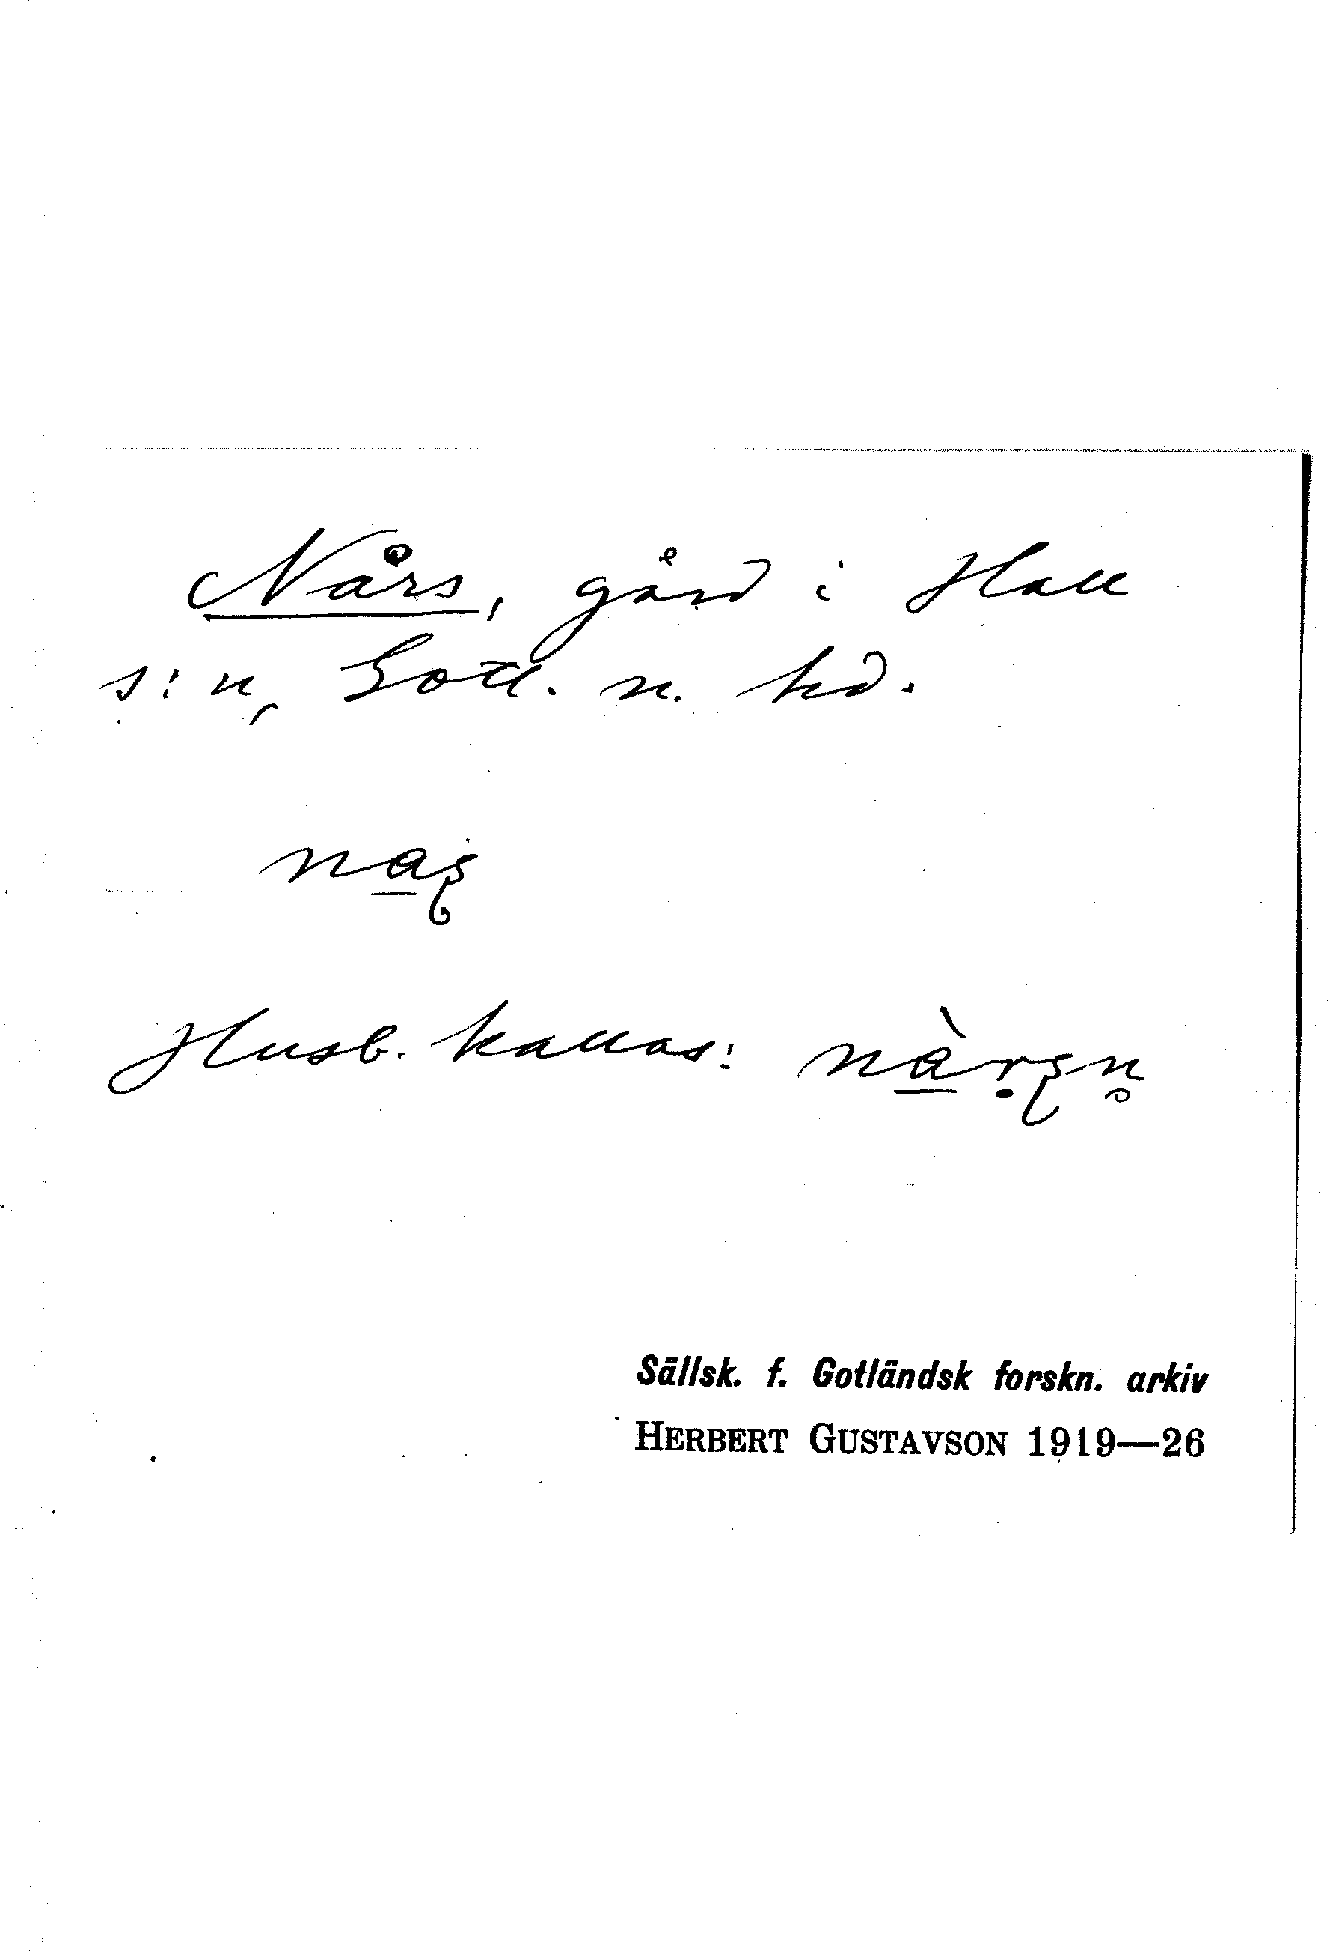 Nårs, gård i Hall
s:n, Gotl. n. hd.
Husb. kallas:
Sällsk. f. Gotländsk forskn. arkiv
HERBERT GUSTAVSON 1919—26